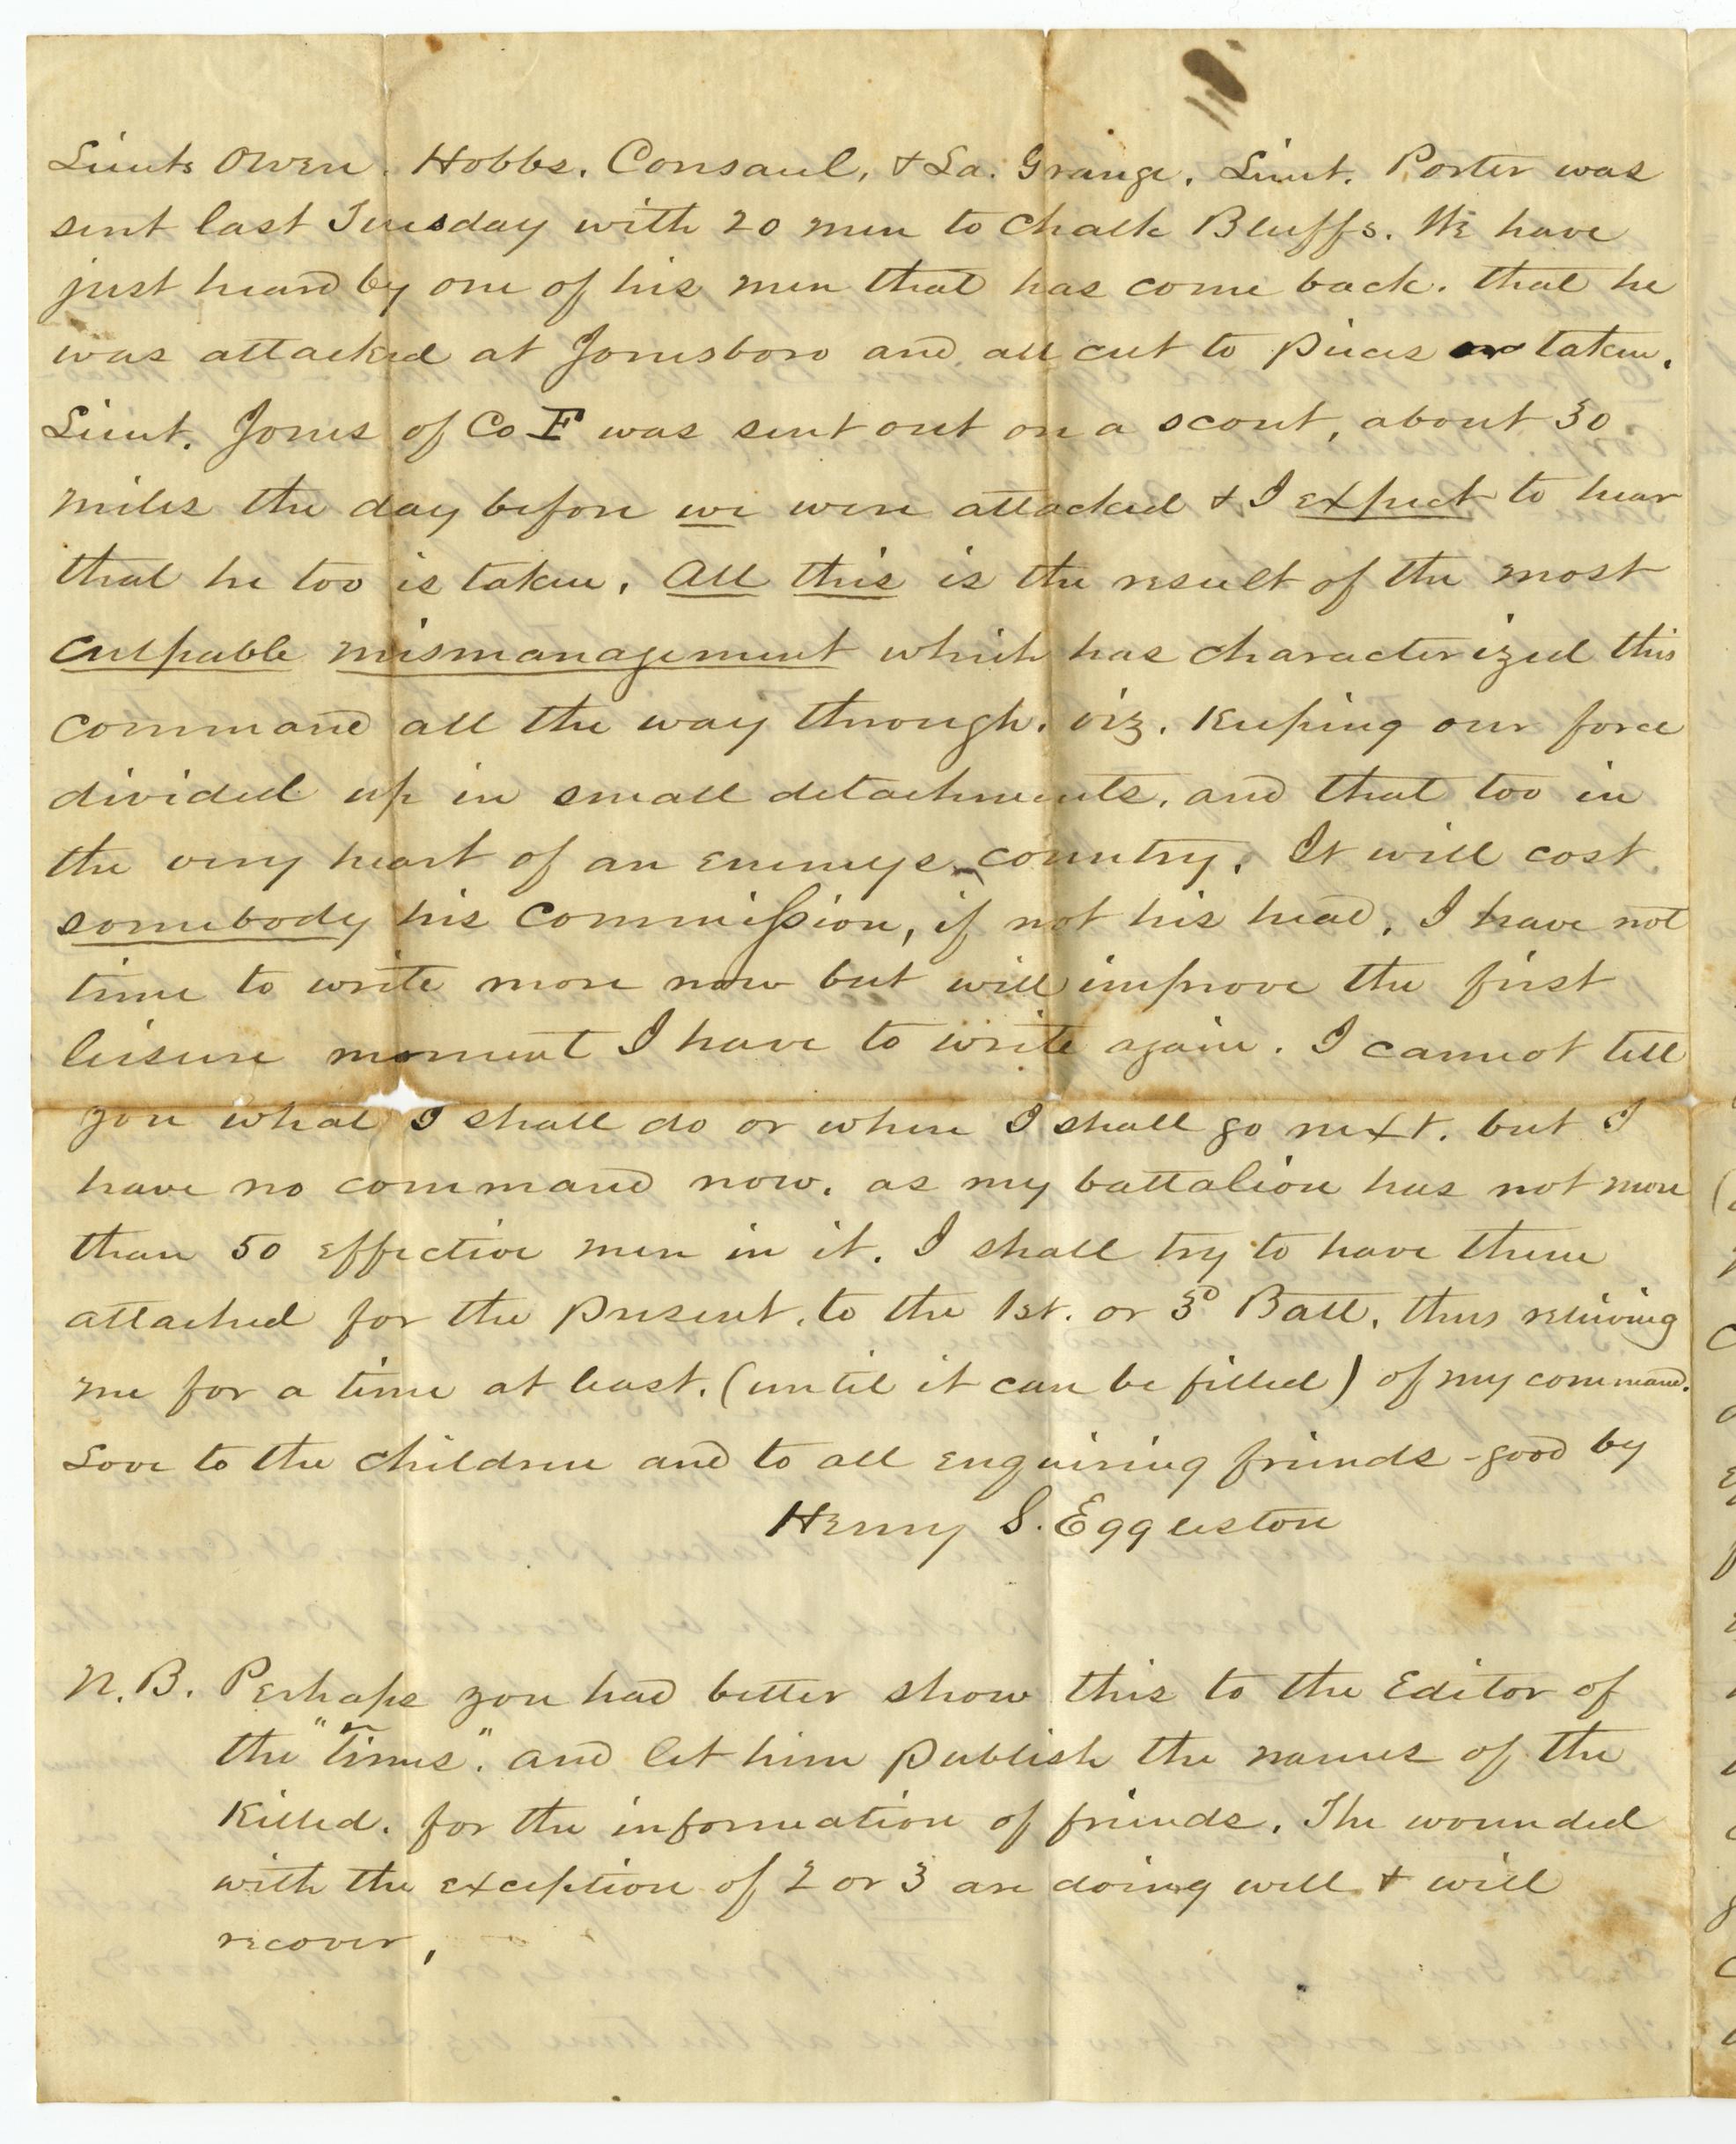 Lieuts Owen. Hobbs. Consaul, & La. Grange. Lieut. Porter was
sent last Tuesday with 20 men to Chalk Bluffs. We have
just heard by one of his men that has come back. that he
was attacked at Jonesboro and all cut to pieces or taken.
Lieut. Jones of Co F was sent out on a scout, about 30
miles the day before we were attacked & I expect to hear
that he too is taken. All this is the result of the most
culpable mismanagement which has characterized this
command all the way through. viz. Keeping our force
divided up in small detachments, and that too in
the very heart of an enemys country. It will cost
somebody his commission, if not his head. I have not
time to write more now but will improve the first
leisure moment I have to write again. I cannot tell
you what I shall do or where I shall go next. but I
have no command now. as my battalion has not more
than 50 effective men in it. I shall try to have them
attached for the present. to the 1st. or 3d Batt. thus relieving
me for a time at least. (until it can be filled) of my command.
Love to the children and to all enquiring friends - good by
Henry S. Eggleston
N.B. Perhaps you had better show this to the Editor of
the "Times". and let him publish the names of the
Killed. for the information of friends. The wounded
with the exception of 2 or 3 are doing well & will
recover,